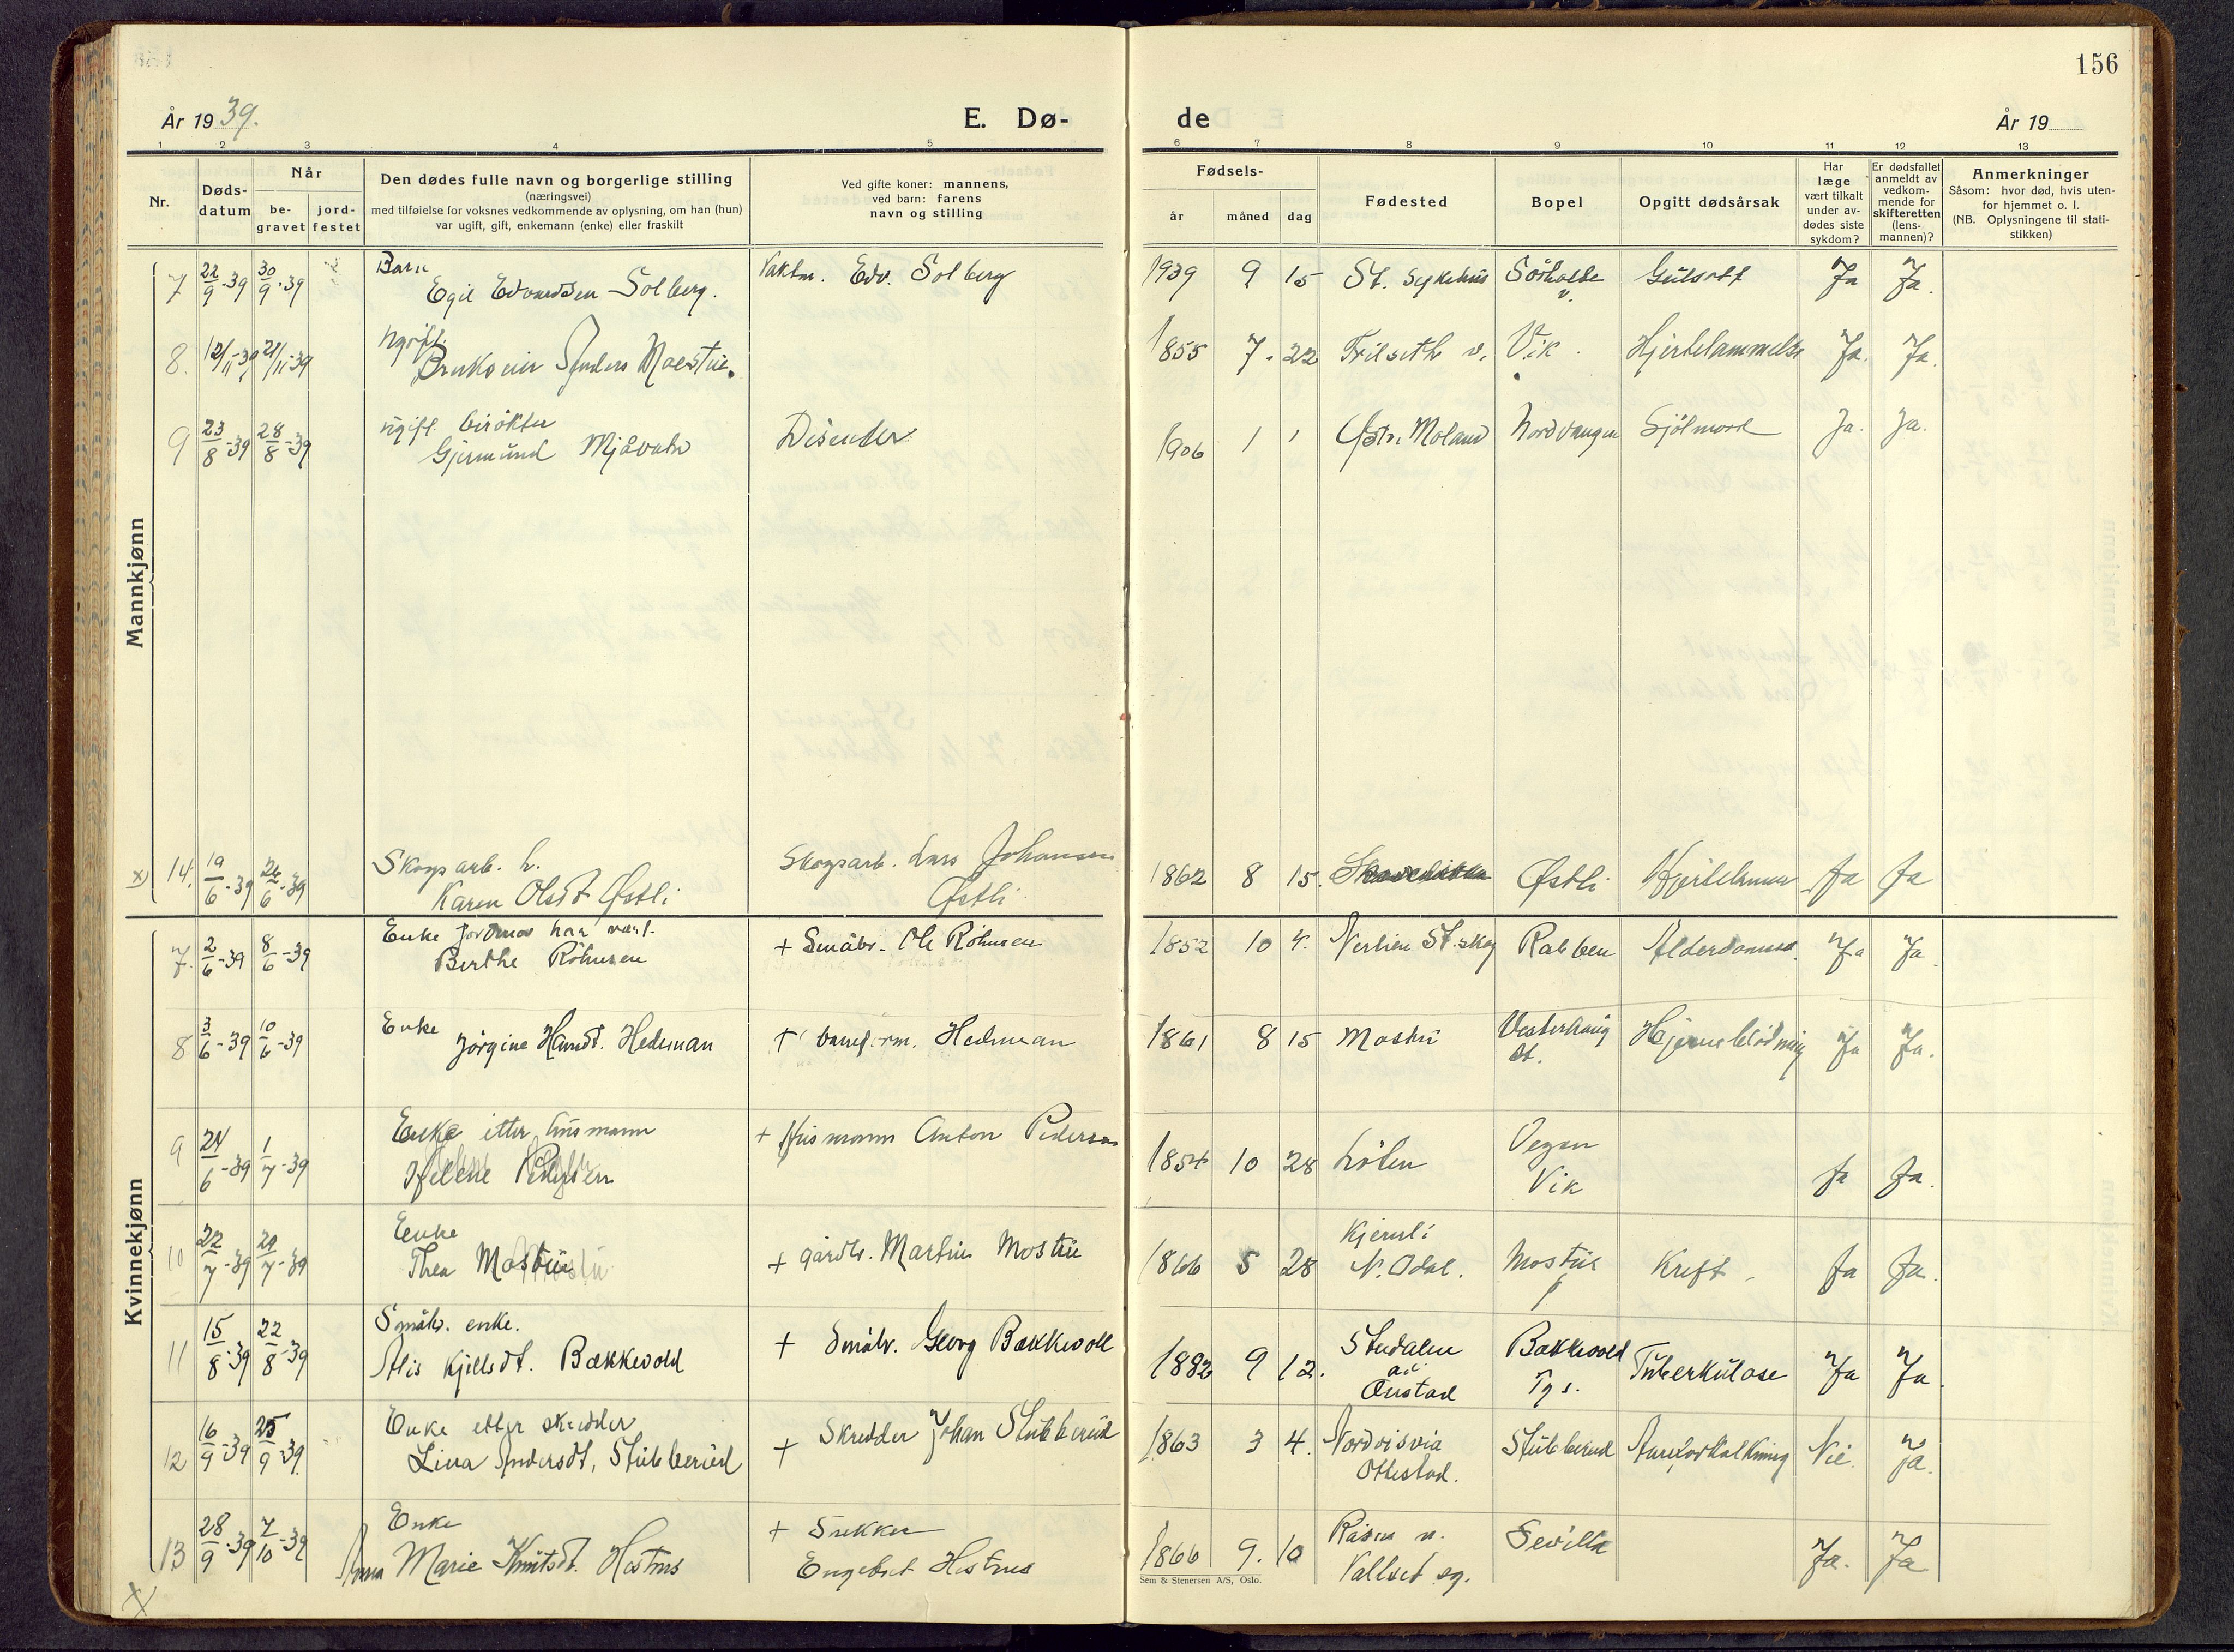 156
År 1939.
E. Dø-
de
År 19
1 2 3 4 5 6 7 8 9 10 11 12 13
Nr.
Døds-
datum
Når
be-
gravet
jord-
festet
Den dødes fulle navn og borgerlige stilling
(næringsvei)
med tilføielse for voksnes vedkommende av oplysning, om han (hun)
var ugift, gift, enkemann (enke) eller fraskilt
Ved gifte koner: mannens,
ved barn: farens
navn og stilling
Fødsels-
år
måned
dag
Fødested
Bopel
Opgitt dødsårsak
Har
læge
vært tilkalt
under av-
dødes siste
sykdom?
Er dødsfallet
anmeldt av
vedkom-
mende for
skifteretten
(lens-
mannen)?
Anmerkninger
Såsom: hvor død, hvis uten-
for hjemmet o. l.
(NB. Oplysningene til stati-
stikken)
Mannkjønn
7 22/9-39 30/9-39 Barn
Egil Edvardsen Solberg. Vaktm. Edv. Solberg 1939 9 15 St. Sykehus v. Gulsott Ja Ja.
8. 12/11-39 21/11-39 ugift.
Brukseier Anders Maestue. 1855 7. 22 Trilseth v. Vik. Hjertelammelse Ja. Ja.
9 23/8-39 28/8-39 ugift birøkter
Gjermund Mjåvatn Disenter 1906 1 1 Østre Moland Nordvangen Sjølmord Ja. Ja.
x) 14. 19/6-39 26/6-39 Skogsarb. h.
Karen Olsdt Østli Skogsarb. Lars Johansen
Østli 1862 8 15. Østli Hjertelammelse Ja Ja
Kvinnekjønn
7. 2/6-39 8/6-39 Enke Jordmor har vært.
Berthe Röhnesen + Småbr. Ole Röhnesen 1852 10 4. Nerlien St.skog Rabben Alderdomss. Ja Ja.
8 3/6-39 10/6-39 Enke
Jörgine Hansdt. Hedeman + Hedeman 1861 8 15 Mostu Vesterhaug
st. Hjerneblödning Ja Ja.
9 24/6-39 1/7-39 Enke etter husmann
Helene Pedersen + Husmann Anton Pedersen 1854 10 28 Löten
Vik Ja Ja.
10 22/7-39 29/7-39 Enke
Thea Mostue + gårdbr. Martin Mostue 1866 5 28 Kjernli
N. Odal. Mostue Kreft Ja Ja.
11 15/8-39 22/8-39 Småbr. enke.
Alis Kjellsdt. Bækkevold + Småbr. Georg Bækkevold 1882 9 12. Studalen
Bækkevold Tuberkulose Ja Ja.
12 16/9-39 25/9-39 Enke etter skredder
Lina Andersdt. Stubberud + Skredder Johan Stubberud 1863 3 4. Nordvisvia
Ottestad. Stubberud Aareforkalkning Nei. Ja.
13 28/9-39 7/10-39 Enke
Anna Marie Knutsdt. Hostues + Snekker
Engebret Hostues 1866 9. 10 Råsen v.
Vallset sg. Sevilla Ja. Ja
x
Sem & Stenersen A/S, Oslo.